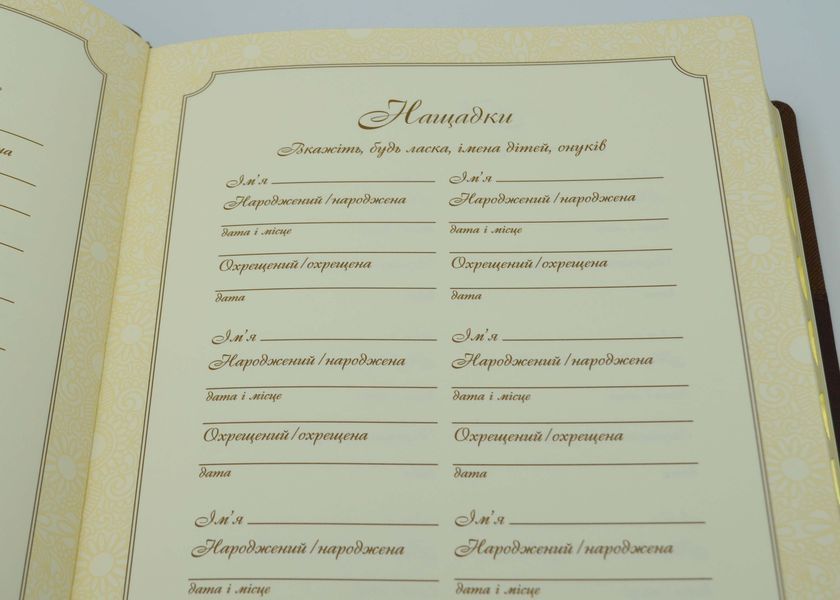 Нащадки
Вкажіть, будь ласка, імена дітей, онуків
Ім'я Ім'я
Народжений/народжена Народжений/народжена
дата і місце дата і місце
Охрещений/охрещена Охрещений/охрещена
дата дата
Ім'я Ім'я
Народжений/народжена Народжений/народжена
дата і місце дата і місце
Охрещений/охрещена Охрещений/охрещена
дата дата
Ім'я Ім'я
Народжений/народжена Народжений/народжена
дата і місце дата і місце